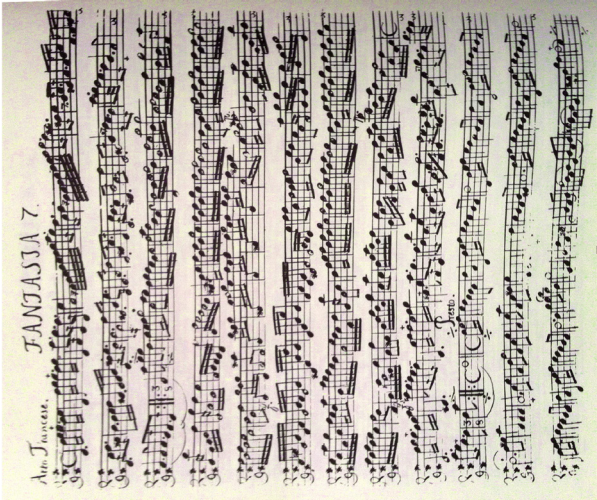 FANTASIA 7.
Alla Francese.
Presto.